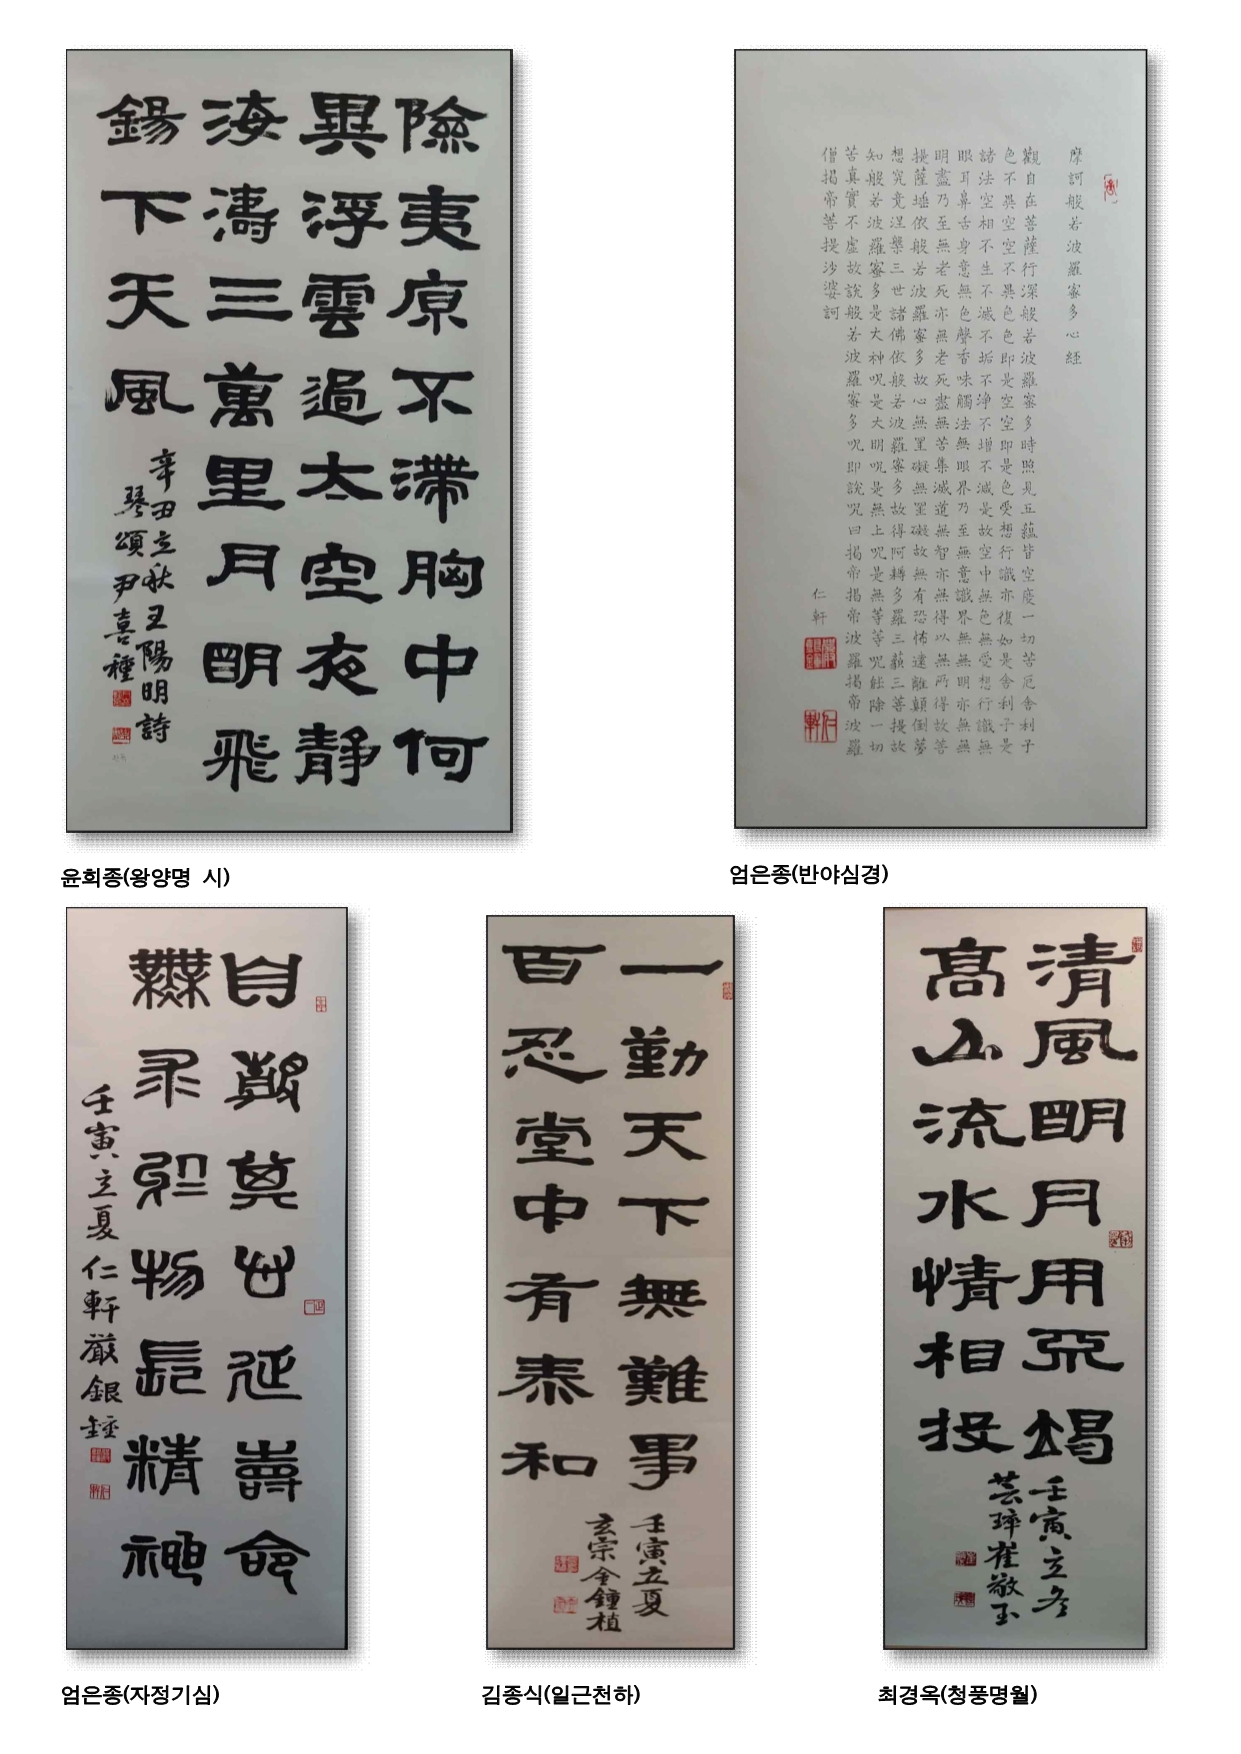 險夷原不滯胸中何
異浮雲過太空夜靜
海濤三萬里月明飛
錫下天風
辛丑立秋王陽明詩
琴頌尹喜種
윤희종(왕양명 시)
摩訶般若波羅蜜多心經
觀自在菩薩行深般若波羅蜜多時照見五蘊皆空度一切苦厄舍利子
色不異空空不異色色即是空空即是色受想行識亦復如是舍利子是
諸法空相不生不滅不垢不淨不增不減是故空中無色無受想行識無
眼耳鼻舌身意無色聲香味觸法無眼界乃至無意識界無無明亦無無
明盡乃至無老死亦無老死盡無苦集滅道無智亦無得以無所得故菩
提薩埵依般若波羅蜜多故心無罣礙無罣礙故無有恐怖遠離顛倒夢
想究竟涅槃三世諸佛依般若波羅蜜多故得阿耨多羅三藐三菩提故
知般若波羅蜜多是大神呪是大明呪是無上呪是無等等呪能除一切
苦真實不虛故說般若波羅蜜多呪即說呪曰揭帝揭帝波羅揭帝波羅
僧揭帝菩提沙婆訶
仁軒
엄은종(반야심경)
自靜其心延壽命
無求於物長精神
壬寅立夏仁軒嚴銀鍾
엄은종(자정기심)
一勤天下無難事
百忍堂中有泰和
壬寅立夏
玄宗金鐘植
김종식(일근천하)
清風明月用不竭
高山流水情相投
壬寅立冬
芸璋崔敬玉
최경옥(청풍명월)